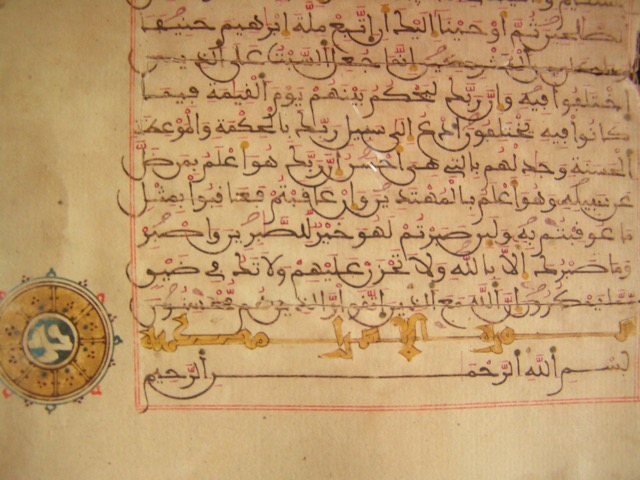 الصلحين ثم اوحينا اليك ان اتبع ملة ابرهيم حنيفا
وما كان من المشركين انما جعل السبت على الذين
اختلفوا فيه وان ربك ليحكم بينهم يوم القيمة فيما
كانوا فيه يختلفون ادع الى سبيل ربك بالحكمة والموعظة
الحسنة وجدلهم بالتي هي احسن ان ربك هو اعلم بمن ضل
عن سبيله وهو اعلم بالمهتدين وان عاقبتم فعاقبوا بمثل
ما عوقبتم به ولين صبرتم لهو خير للصبرين واصبر
وما صبرك الا بالله ولا تحزن عليهم ولا تك في ضيق
مما يمكرون ان الله مع الذين اتقوا والذين هم محسنون
سورة الاسرا مكية
بسم الله الرحمن الرحيم